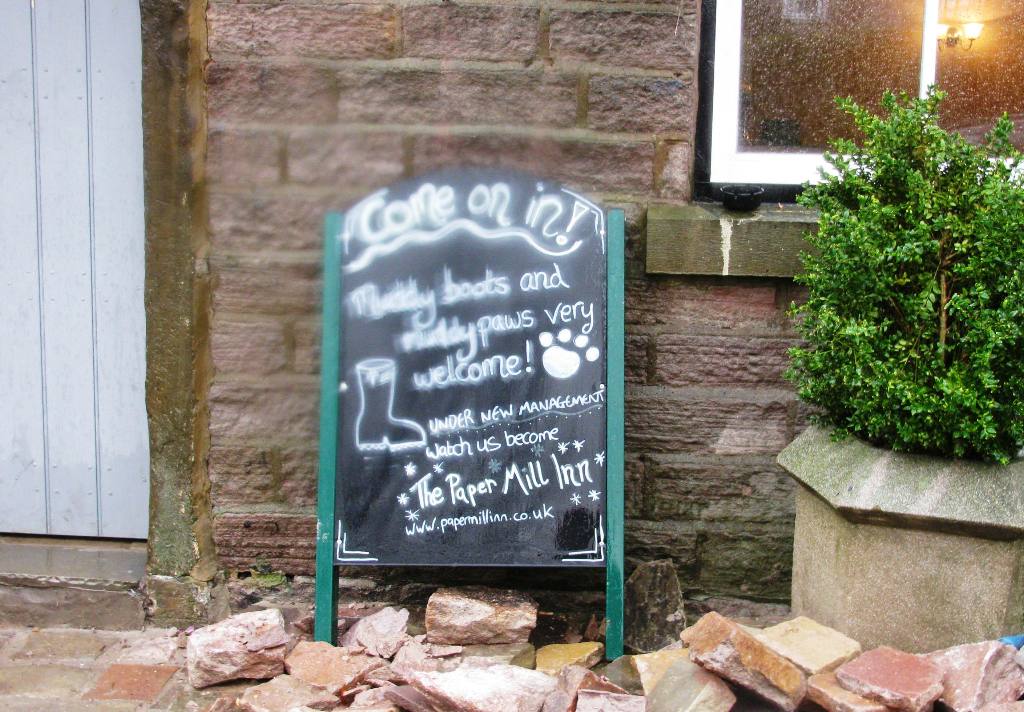 Come on in!
Muddy boots and
muddy paws very
welcome!
UNDER NEW MANAGEMENT
Watch us become
The Paper Mill Inn
www.papermillinn.co.uk